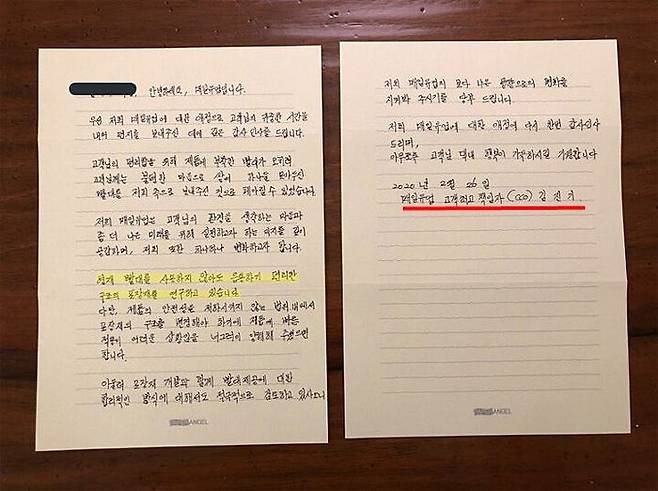 안녕하세요, 매일유업입니다.
우선 저희 매일유업에 대한 애정으로 고객님의 귀중한 시간을
내어 편지를 보내주신 데에 깊은 감사 인사를 드립니다.
고객님의 편리함을 위해 제품에 부착한 빨대가 오히려
고객님께는 불편한 마음으로 쌓여 하나씩 모아두신
빨대를 저희 측으로 보내주신 것으로 헤아릴 수 있었습니다.
저희 매일유업은 고객님의 환경을 생각하는 마음과
좀 더 나은 미래를 위해 실천하고자 하는 의지를 깊이
공감하며, 저희 또한 변화하고자 합니다.
현재 빨대를 사용하지 않아도 음용하기 편리한
구조의 포장재를 연구하고 있습니다.
다만, 제품의 안전성은 저하시키지 않는 범위 내에서
포장재의 구조를 변경해야 하기에 제품에 빠른
적용이 어려운 상황임을 너그러이 양해해 주셨으면
합니다.
아울러 포장재 개발과 함께 빨대제공에 대한
합리적인 방식에 대해서도 적극적으로 검토하고 있사오니
ANGEL
저희 매일유업의 보다 나은 방향으로의 변화를
지켜봐 주시기를 당부 드립니다.
저희 매일유업에 대한 애정에 다시 한번 감사인사
드리며,
아무쪼록 고객님 댁내 행복이 가득하시길 기원합니다
2020년 2월 26일
매일유업 고객최고책임자 (CCO) 김진기
ANGEL